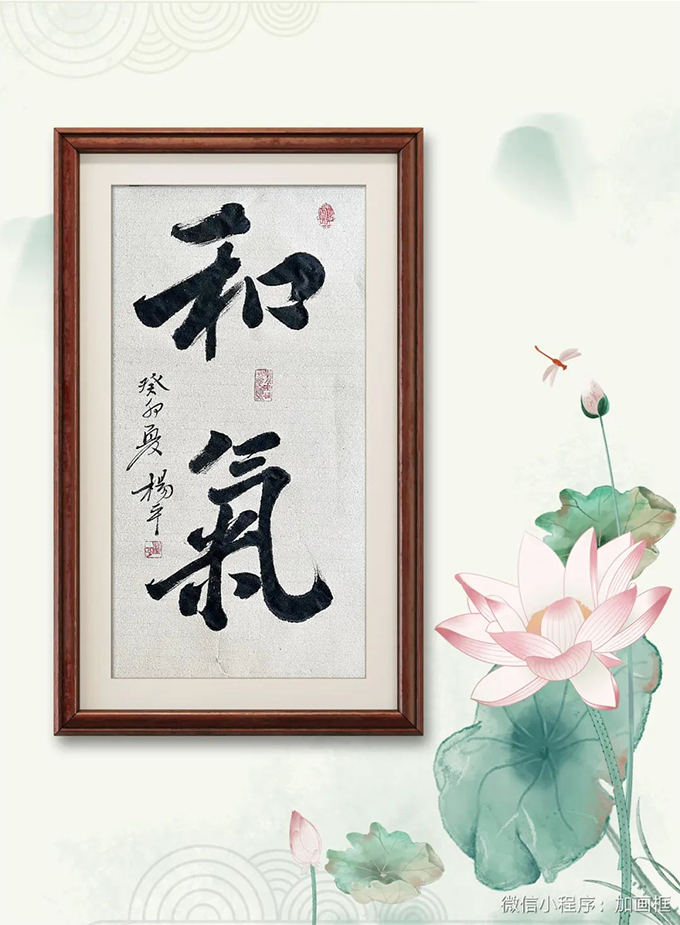 和氣
癸卯夏 楊平
微信小程序：加画框